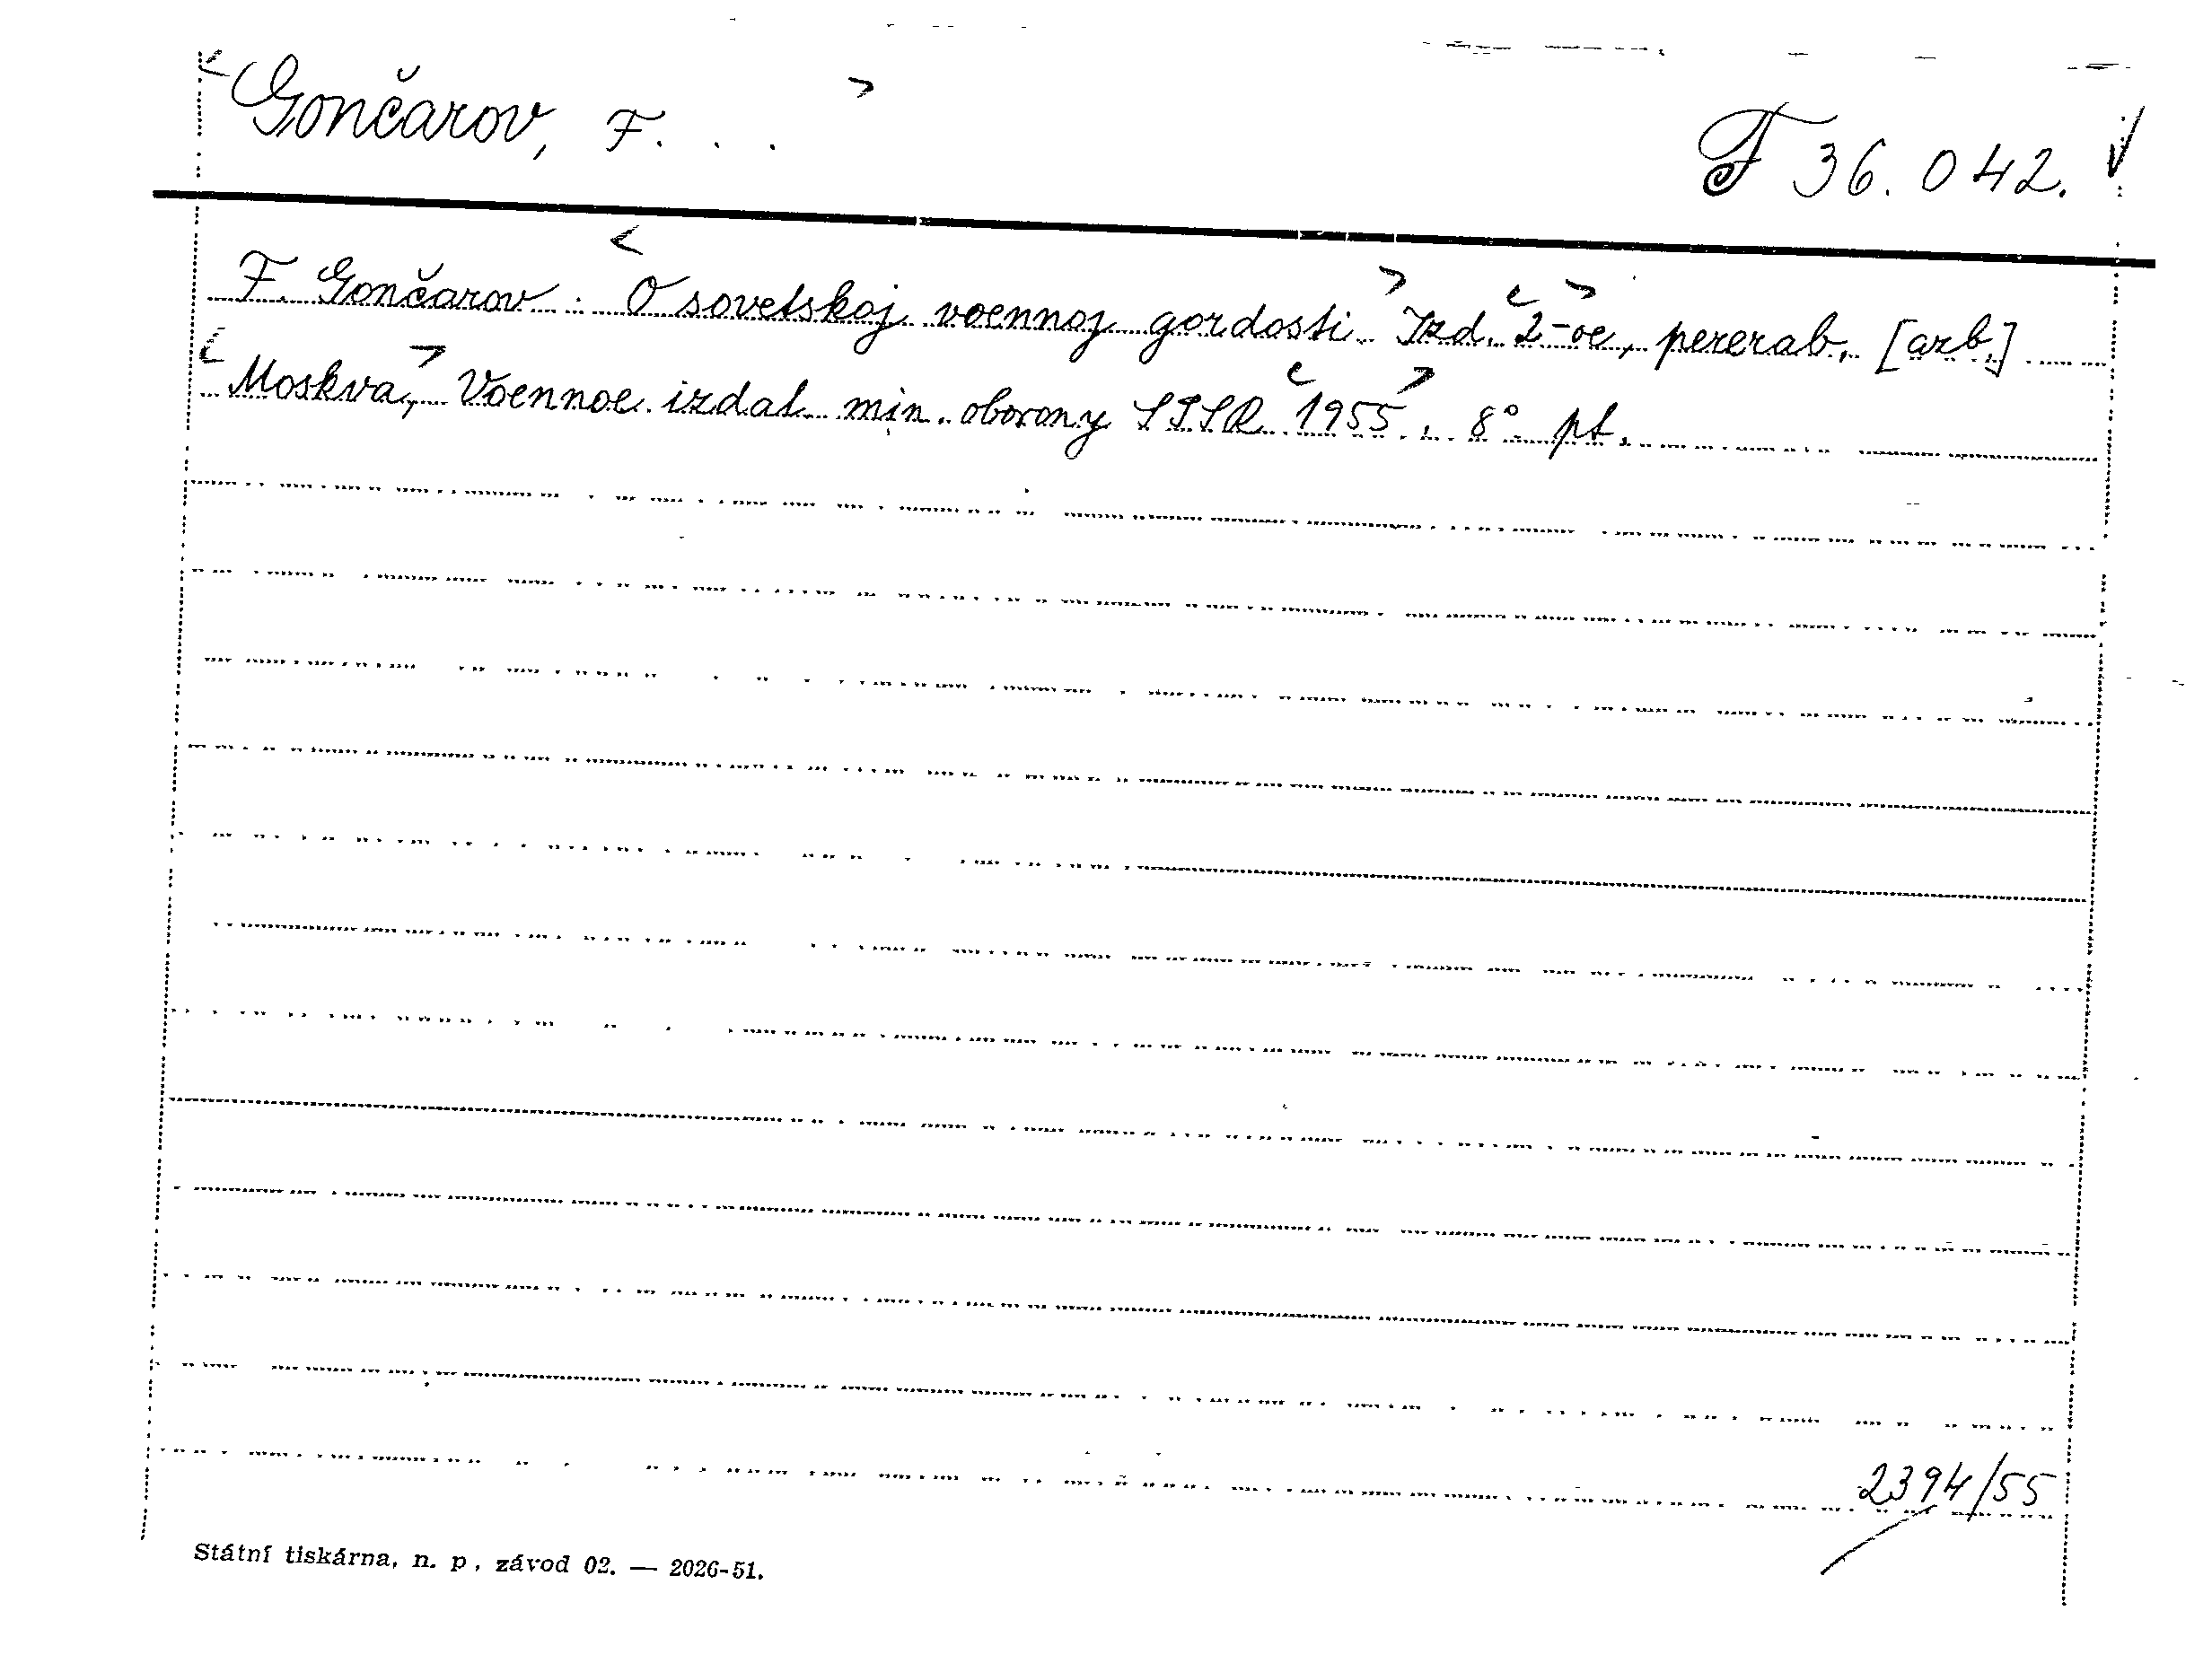 <Gončarov, F. . . >
F 36.042.
F. Gončarov: <O sovetskoj voennoj gordosti.> Izd. <2-oe>, pererab. [azb.]
<Moskva,> Voennoe izdat. min. oborony SSSR <1955>. 8° pt.
2394/55
Státní tiskárna, n. p., závod 02. — 2026-51.